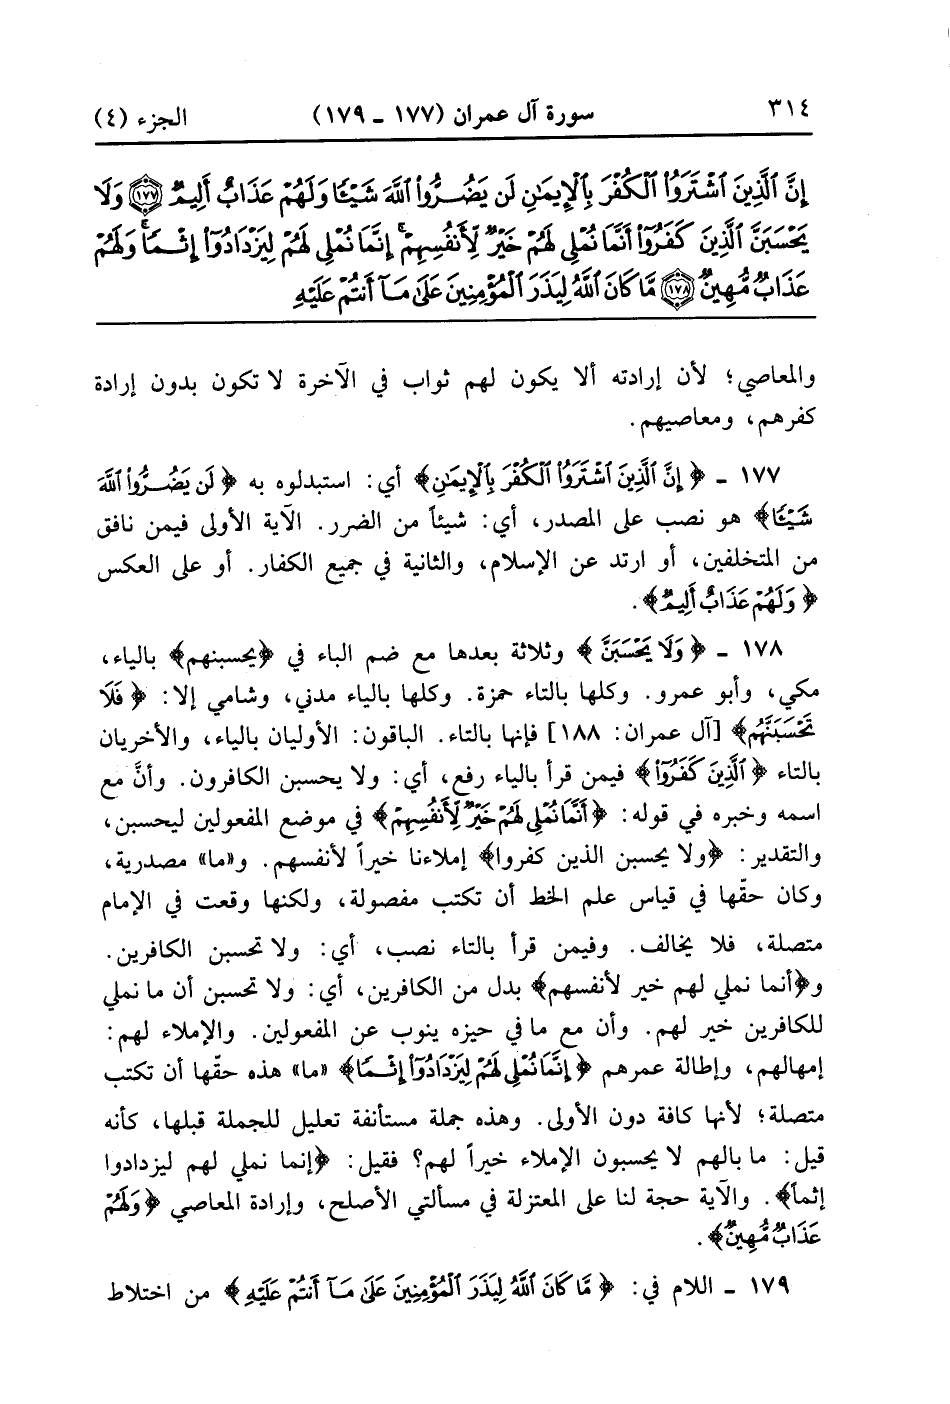 ٣١٤ سورة آل عمران (١٧٧ ـ ١٧٩) الجزء (٤)
إِنَّ ٱلَّذِينَ ٱشْتَرَوُا۟ ٱلْكُفْرَ بِٱلْإِيمَٰنِ لَن يَضُرُّوا۟ ٱللَّهَ شَيْـًٔا وَلَهُمْ عَذَابٌ أَلِيمٌ ١٧٧ وَلَا
يَحْسَبَنَّ ٱلَّذِينَ كَفَرُوٓا۟ أَنَّمَا نُمْلِى لَهُمْ خَيْرٌ لِّأَنفُسِهِمْ ۚ إِنَّمَا نُمْلِى لَهُمْ لِيَزْدَادُوٓا۟ إِثْمًا ۚ وَلَهُمْ
عَذَابٌ مُّهِينٌ ١٧٨ مَّا كَانَ ٱللَّهُ لِيَذَرَ ٱلْمُؤْمِنِينَ عَلَىٰ مَآ أَنتُمْ عَلَيْهِ
والمعاصي؛ لأن إرادته ألا يكون لهم ثواب في الآخرة لا تكون بدون إرادة
كفرهم، ومعاصيهم.
١٧٧ ـ ﴿إِنَّ ٱلَّذِينَ ٱشْتَرَوُا۟ ٱلْكُفْرَ بِٱلْإِيمَٰنِ﴾ أي: استبدلوه به ﴿لَن يَضُرُّوا۟ ٱللَّهَ
شَيْـًٔا﴾ هو نصب على المصدر، أي: شيئاً من الضرر. الآية الأولى فيمن نافق
من المتخلفين، أو ارتد عن الإسلام، والثانية في جميع الكفار. أو على العكس
﴿وَلَهُمْ عَذَابٌ أَلِيمٌ﴾.
١٧٨ ـ ﴿وَلَا يَحْسَبَنَّ﴾ وثلاثة بعدها مع ضم الباء في ﴿يحسبنهم﴾ بالياء،
مكي، وأبو عمرو. وكلها بالتاء حمزة. وكلها بالياء مدني، وشامي إلا: ﴿فَلَا
تَحْسَبَنَّهُم﴾ [آل عمران: ١٨٨] فإنها بالتاء. الباقون: الأوليان بالياء، والأخريان
بالتاء ﴿ٱلَّذِينَ كَفَرُوٓا۟﴾ فيمن قرأ بالياء رفع، أي: ولا يحسبن الكافرون. وأنَّ مع
اسمه وخبره في قوله: ﴿أَنَّمَا نُمْلِى لَهُمْ خَيْرٌ لِّأَنفُسِهِمْ﴾ في موضع المفعولين ليحسبن،
والتقدير: ﴿ولا يحسبن الذين كفروا﴾ إملاءنا خيراً لأنفسهم. و«ما» مصدرية،
وكان حقّها في قياس علم الخط أن تكتب مفصولة، ولكنها وقعت في الإمام
متصلة، فلا يخالف. وفيمن قرأ بالتاء نصب، أي: ولا تحسبن الكافرين.
و﴿أنما نملي لهم خير لأنفسهم﴾ بدل من الكافرين، أي: ولا تحسبن أن ما نملي
للكافرين خير لهم. وأن مع ما في حيزه ينوب عن المفعولين. والإملاء لهم:
إمهالهم، وإطالة عمرهم ﴿إِنَّمَا نُمْلِى لَهُمْ لِيَزْدَادُوٓا۟ إِثْمًا﴾ «ما» هذه حقّها أن تكتب
متصلة؛ لأنها كافة دون الأولى. وهذه جملة مستأنفة تعليل للجملة قبلها، كأنه
قيل: ما بالهم لا يحسبون الإملاء خيراً لهم؟ فقيل: ﴿إنما نملي لهم ليزدادوا
إثماً﴾. والآية حجة لنا على المعتزلة في مسألتي الأصلح، وإرادة المعاصي ﴿وَلَهُمْ
عَذَابٌ مُّهِينٌ﴾.
١٧٩ ـ اللام في: ﴿مَّا كَانَ ٱللَّهُ لِيَذَرَ ٱلْمُؤْمِنِينَ عَلَىٰ مَآ أَنتُمْ عَلَيْهِ﴾ من اختلاط